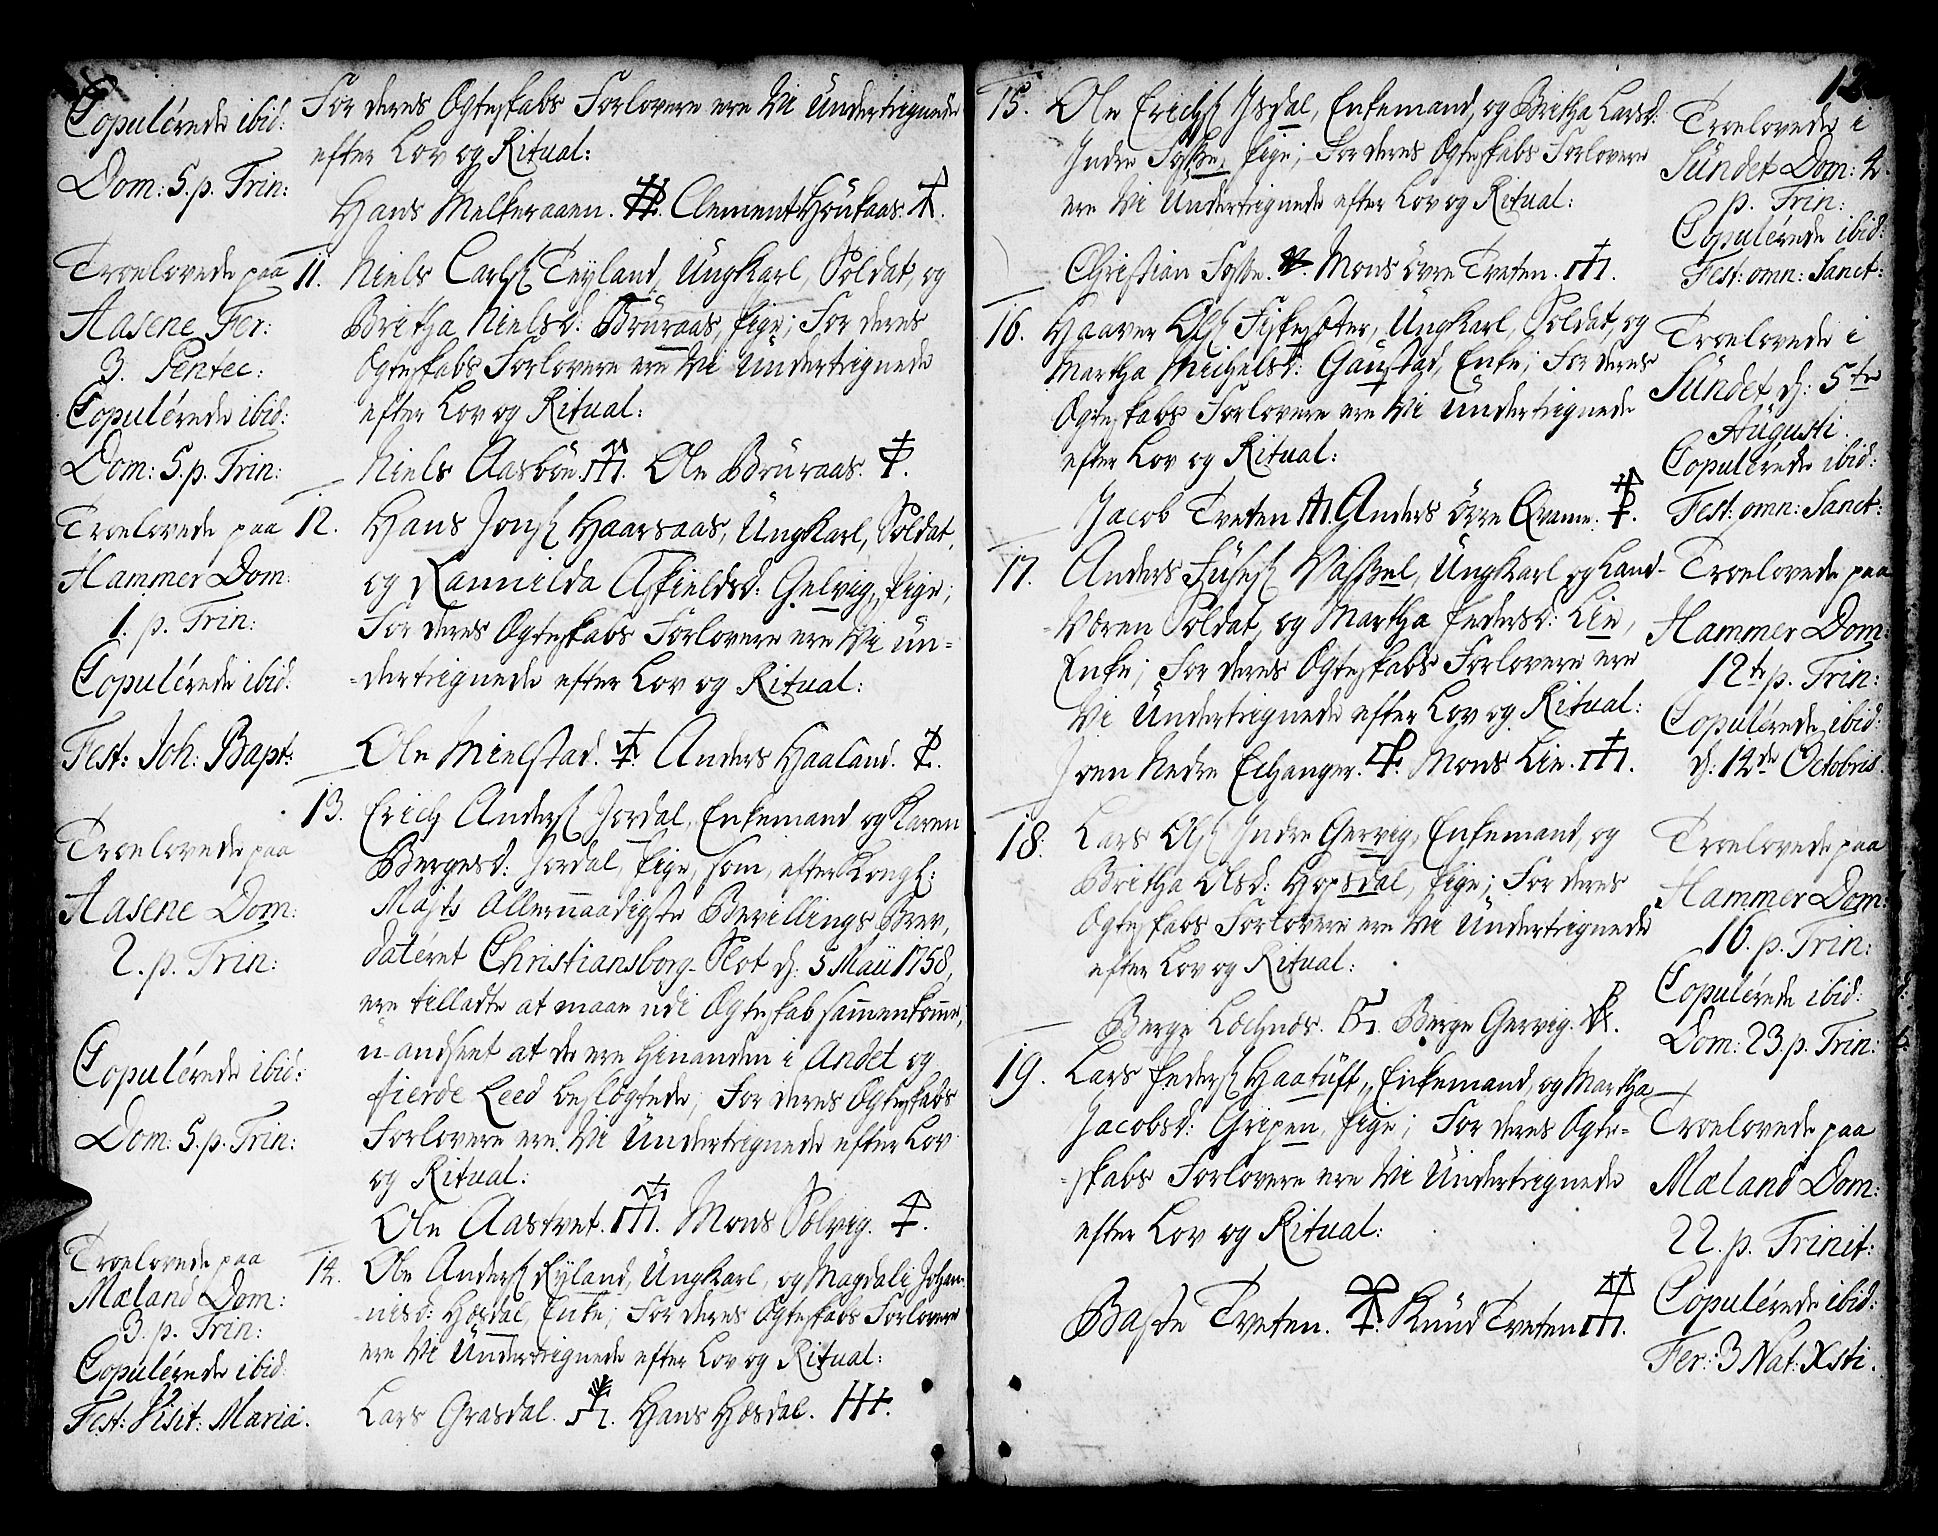 Copulérede ibid:
Dom: 5. p. Trin:
For deres Ægteskabs Forlovere ere Vi Undertegnede
efter Lov og Ritual:
Hans Melkeraaen. Clement Höukaas.
Troelovede paa
Aasene Fer:
3. Pentec:
Copulérede ibid:
Dom: 5. p. Trin:
11. Niels Carls. Teyland, Ungkarl, Soldat, og
Britha Nielsd: Bruraas, Pige; For deres
Ægteskabs Forlovere ere Vi Undertegnede
efter Lov og Ritual:
Niels Aasböe. Ole Bruraas.
Troelovede paa
Hammer Dom:
1. p. Trin:
Copulérede ibid:
Fest: Joh: Bapt:
12. Hans Jons. Haarsaas, Ungkarl, Soldat,
og Rannilda Askieldsd: Gelvig, Pige;
For deres Ægteskabs Forlovere ere Vi Un-
-dertegnede efter Lov og Ritual:
Ole Mielstad. Anders Haaland.
Troelovede paa
Aasene Dom:
2. p. Trin:
Copulérede ibid:
Dom: 5. p. Trin:
13. Erich Anders. Jordal, Enkemand og Karen
Bergesd: Jordal, Pige, som, efter Kongl:
Majts Allernaadigste Bevillings Brev,
datéret Christiansborg-Slot d: 5 Maii 1758,
ere tilladte at maae udi Ægteskab sammenkomme,
u-andseet at de ere hinanden i Andet og
fierde Leed beslægtede; For deres Ægteskabs
Forlovere ere Vi Undertegnede efter Lov
og Ritual:
Ole Aastvet. Mons Solvig.
Troelovede paa
Mæland Dom:
3. p. Trin:
Copulérede ibid:
Fest: Visit: Mariä.
14. Ole Anders. Ryland, Ungkarl, og Magdali Johan-
-nisd: Hæsdal, Enke; For deres Ægteskabs Forlovere
ere Vi Undertegnede efter Lov og Ritual:
Lars Grasdal. Hans Hæsdal.
15. Ole Erichs. Isdal, Enkemand, og Britha Larsd:
Indre Fosse, Pige; For deres Ægteskabs Forlovere
ere Vi Undertegnede efter Lov og Ritual:
Christian Fosse. Mons övre Tveten.
Troelovede i
Sundet Dom: 4.
p. Trin:
Copulérede ibid:
Fest: omn: Sanct:
16. Haaver Ols. Fiskesæter, Ungkarl, Soldat, og
Martha Michelsd: Gaustad, Enke; For deres
Ægteskabs Forlovere ere Vi Undertegnede
efter Lov og Ritual:
Jacob Tveten. Anders övre Qvame.
Troelovede i
Sundet d: 5te
Augusti
Copulérede ibid:
Fest: omn: Sanct:
17. Anders Vassel, Ungkarl og Land-
-Væren Soldat, og Martha Pedersd: Lie,
Enke; For deres Ægteskabs Forlovere ere
Vi Undertegnede efter Lov og Ritual:
Joen Nedre Echanger. Mons Lie.
Troelovede paa
Hammer Dom:
12te p. Trin:
Copulérede ibid:
d: 12de Octobris.
18. Lars Ols. Indre Gervig, Enkemand, og
Britha Olsd: Hopsdal, Pige; For deres
Ægteskabs Forlovere ere Vi Undertegnede
efter Lov og Ritual:
Berge Lochnæs. Berge Gervig.
Troelovede paa
Hammer Dom:
16. p. Trin:
Copulérede ibid:
Dom: 23. p. Trin:
19. Lars Peders. Haatuft, Enkemand, og Martha
Jacobsd: Gripen, Pige; For deres Ægte-
-skabs Forlovere ere Vi Undertegnede
efter Lov og Ritual:
Baste Tveten. Knud Tveten.
Troelovede paa
Mæland Dom:
22. p. Trinit:
Copulérede ibid:
Fer: 3 Nat: Xsti.